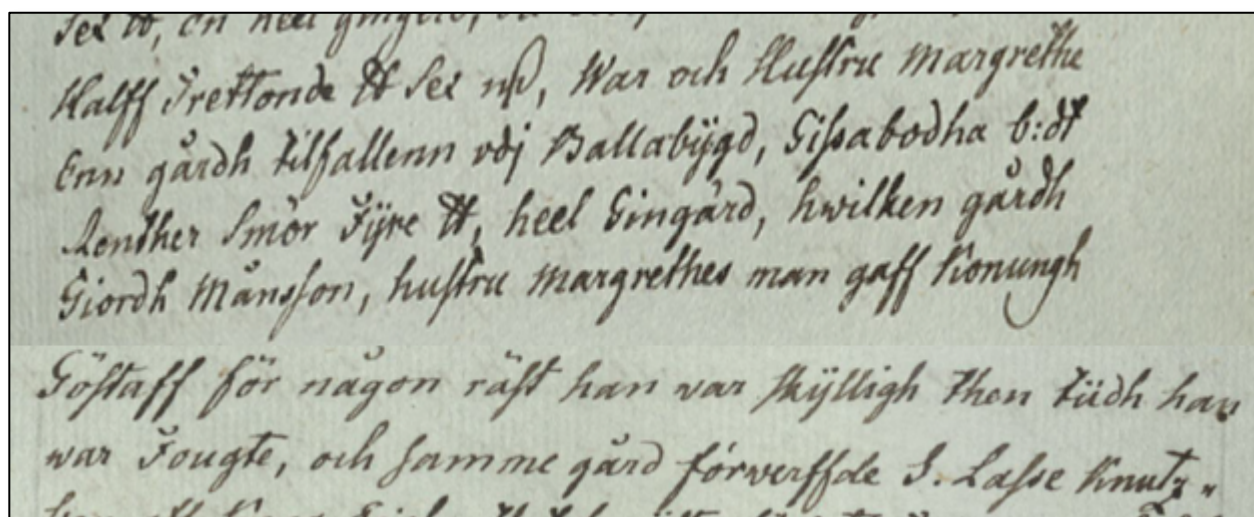 sex ℔, en heel gingerd,
Halff Trettonde ℔ Sex , War och Hustru Margrethe
Enn gårdh tilfallenn vdj Ballabÿgd, Gissabodha b:dt
Rendher Smör Fÿre ℔, heel Gingärd, hwilken gårdh
Giordh Månsson, hustru Margrethes man gaff Konungh
Göstaff för någon räst han war skÿlligh then tiidh han
war Fougte, och samme gård förwerffde S. Lasse Knutz-